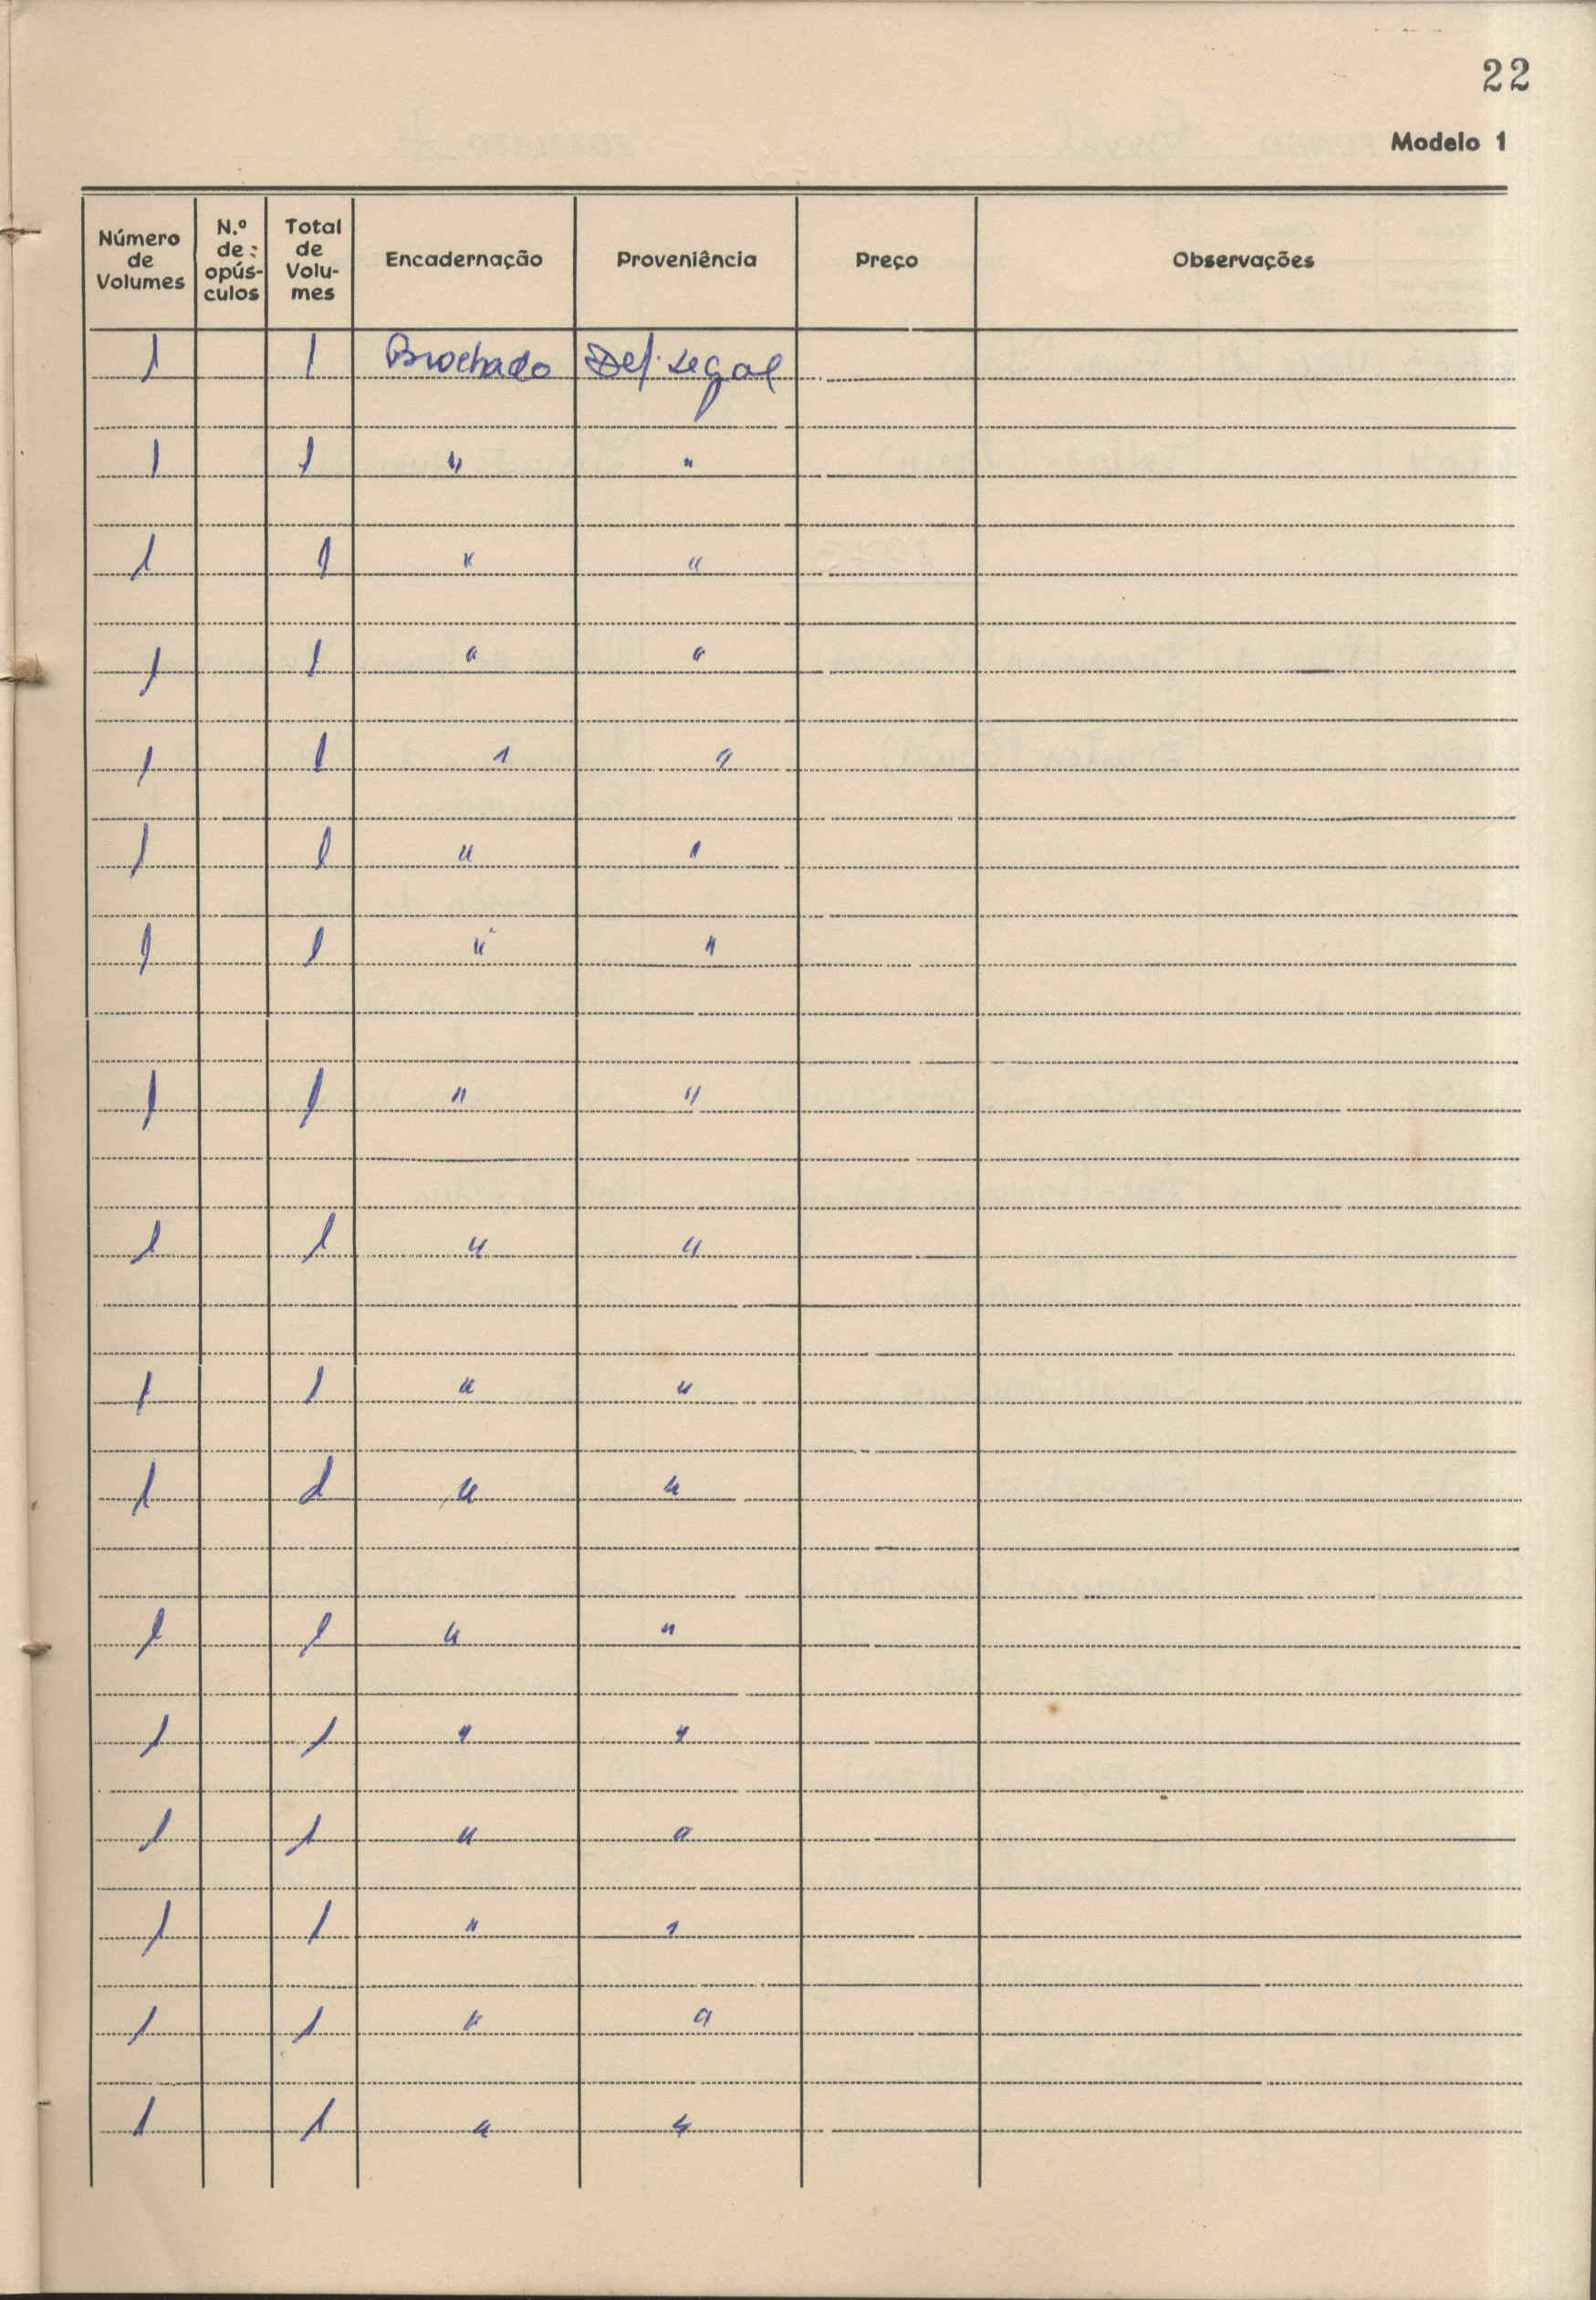 22
Modelo 1
Número de Volumes N.º de opús- culos Total de Volu- mes Encadernação Proveniência Preço Observações
1 1 Brochado Dep. Legal
1 1 " "
1 1 " "
1 1 " "
1 1 " "
1 1 " "
1 1 " "
1 1 " "
1 1 " "
1 1 " "
1 1 " "
1 1 " "
1 1 " "
1 1 " "
1 1 " "
1 1 " "
1 1 " "